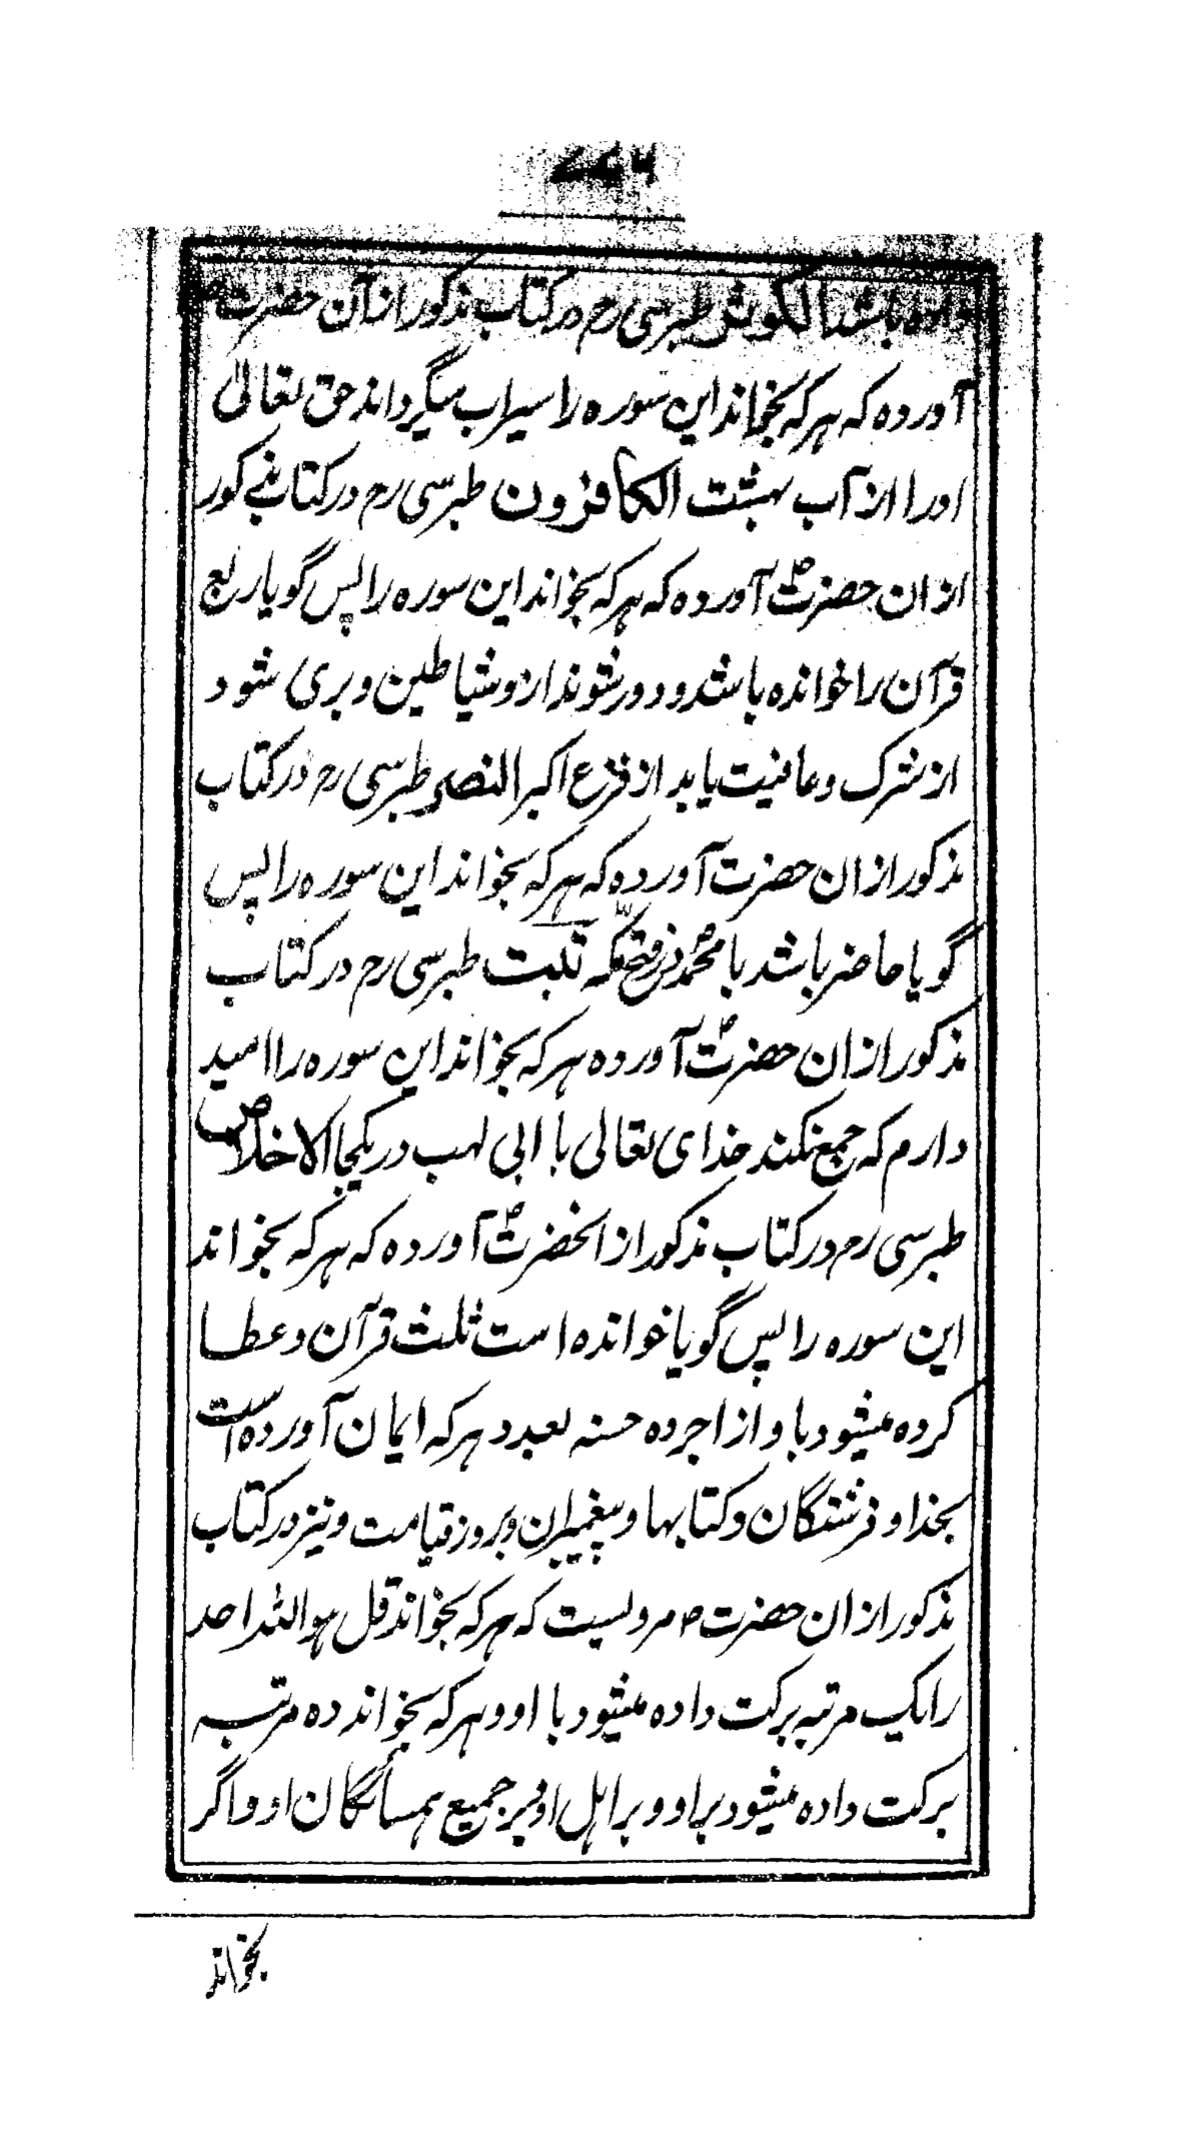 باشد الکوثر طبرسی رح در کتاب مذکور از آن حضرت
آورده که هر که بخواند این سوره را سیراب میگرداند حق تعالی
اورا از آب بهشت الکافرون طبرسی رح در کتاب مذکور
از ان حضرت ص آورده که هر که بخواند این سوره را پس گویا ربع
قرآن را خوانده باشد و دور شوند از و شیاطین و بری شود
از شرک و عافیت یابد از فزع اکبر النصر طبرسی رح در کتاب
مذکور از ان حضرت آورده که هر که بخواند این سوره را پس
گویا حاضر باشد با محمد ص در فتح مکه تبت طبرسی رح در کتاب
مذکور از ان حضرت ص آورده هر که بخواند این سوره را امید
دارم که جمع نکند خدای تعالی با ابی لهب در یکجا الاخلاص
طبرسی رح در کتاب مذکور از انحضرت ص آورده که هر که بخواند
این سوره را پس گویا خوانده است ثلث قرآن و عطا
کرده میشود با و از اجر ده حسنه بعدد هر که ایمان آورده است
بخدا و فرشتگان و کتابها و پیغمبران و بروز قیامت و نیز در کتاب
مذکور از ان حضرت ص مرویست که هر که بخواند قل هو الله احد
را یک مرتبه برکت داده میشود با او و هر که بخواند ده مرتبه
برکت داده میشود بر او و بر اهل او و بر جمیع همسائگان او و اگر
بخواند